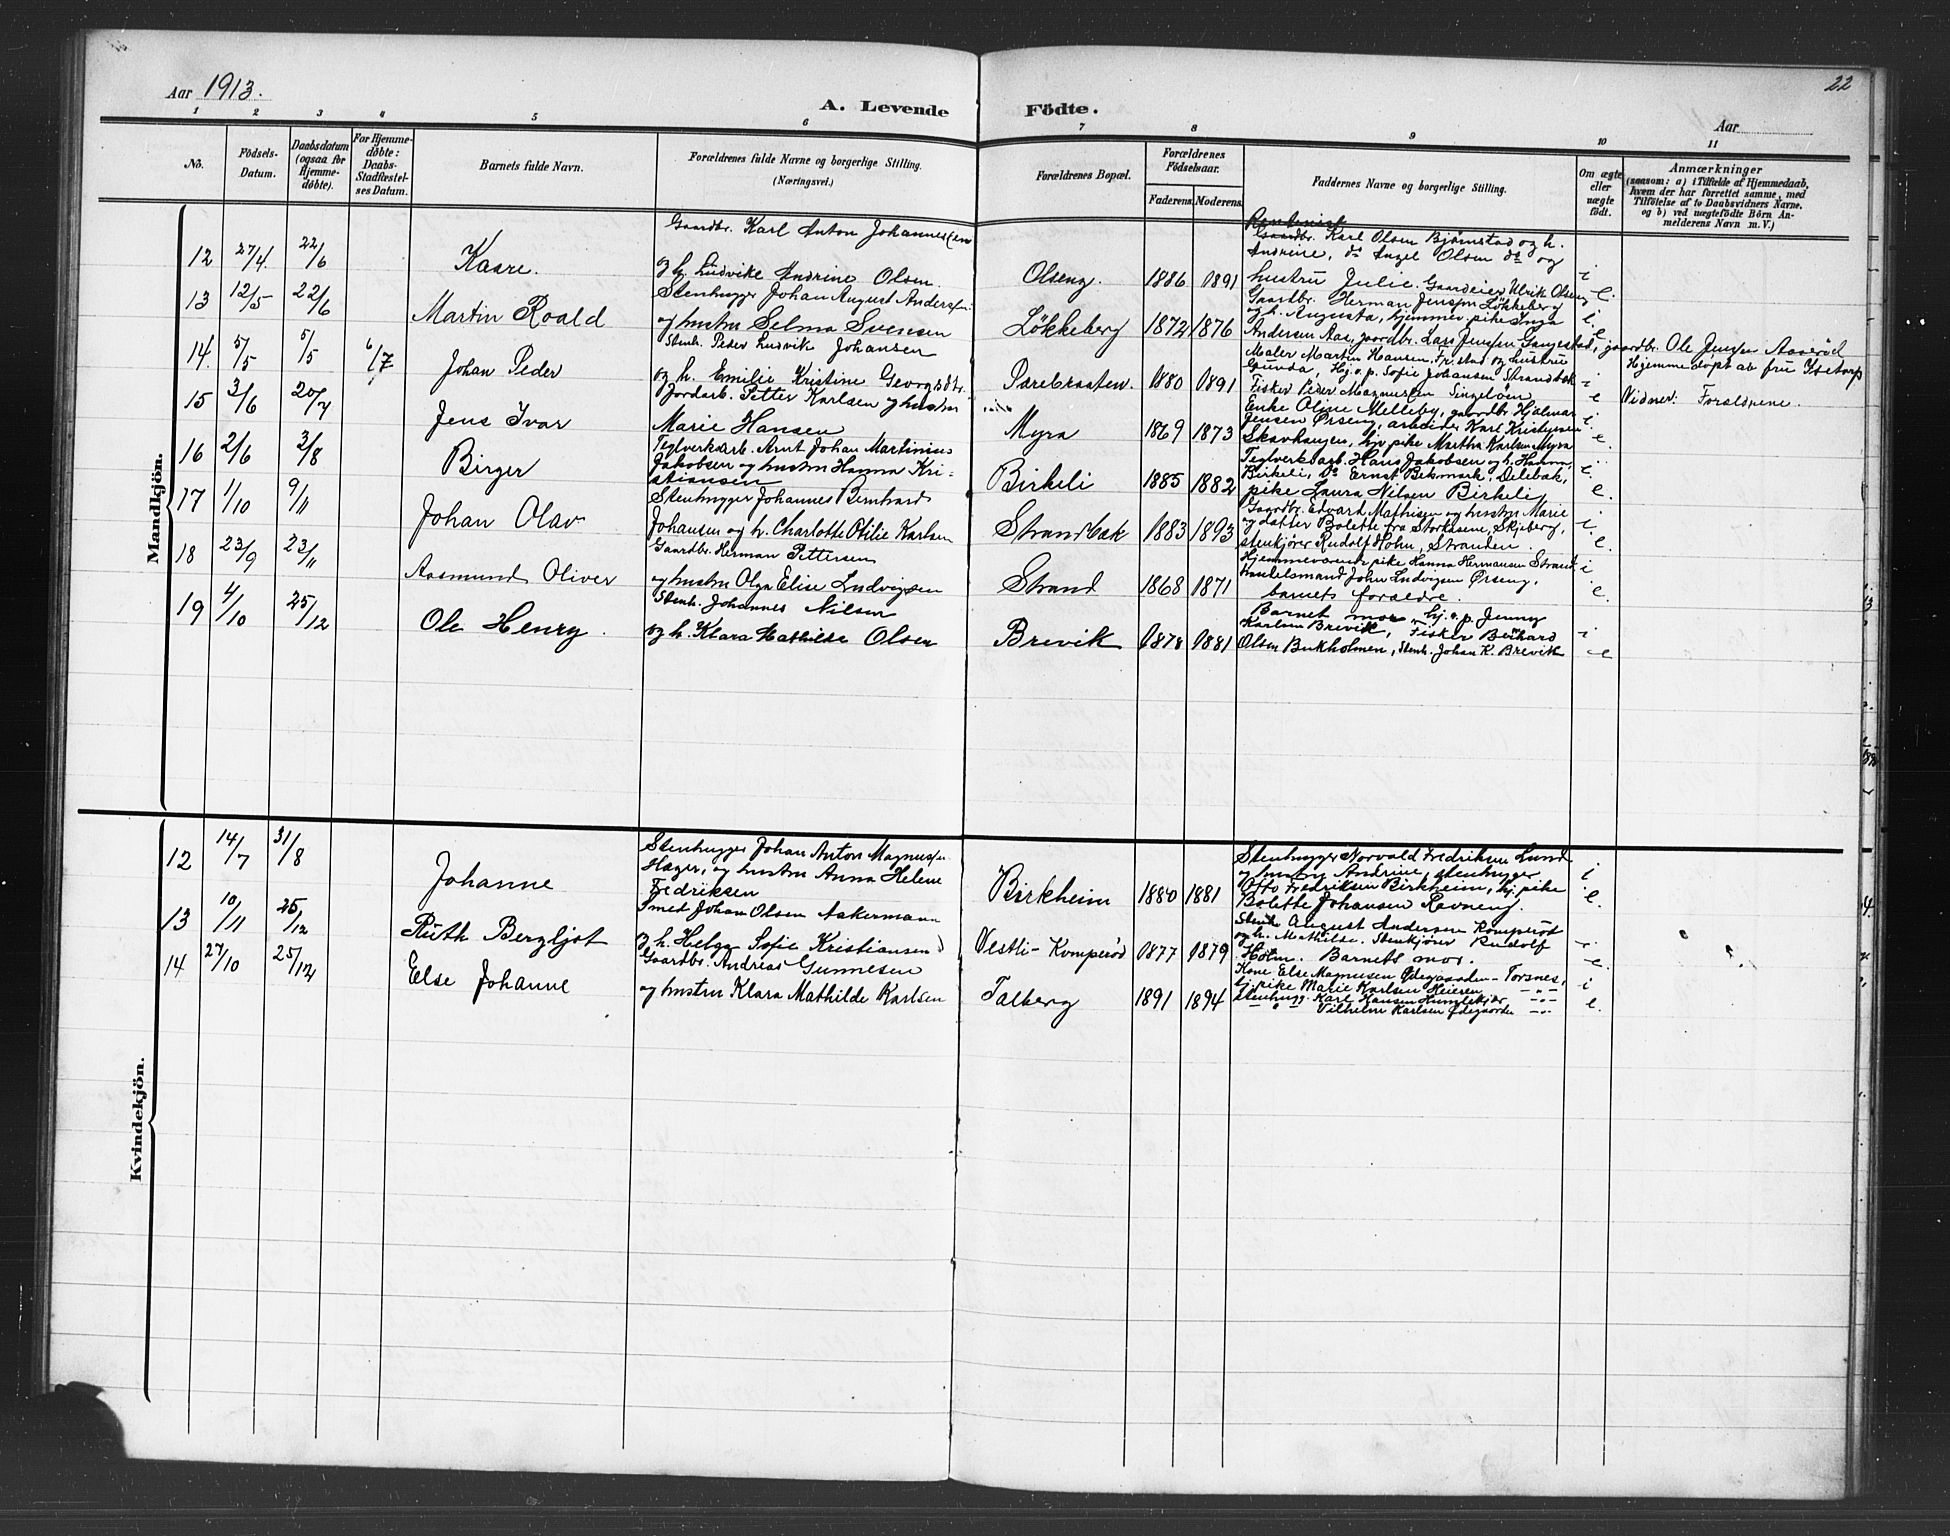 22
Aar 1913.
A. Levende Födte.
Aar
1 2 3 4 5 6 7 8 9 10 11
No.
Födsels-
Datum.
Daabsdatum
(ogsaa for
Hjemme-
døbte).
For Hjemme-
døbte:
Daabs-
Stadfæstel-
ses Datum.
Barnets fulde Navn.
Forældrenes fulde Navne og borgerlige Stilling.
(Næringsvei.)
Forældrenes Bopæl.
Forældrenes
Födselsaar.
Faderens. Moderens.
Faddernes Navne og borgerlige Stilling.
Om ægte
eller
uægte
födt.
Anmærkninger
(saasom: a) i Tilfælde af Hjemmedaab,
hvem der har forrettet samme, med
Tilföielse af to Daabsvidners Navne.
og b) ved uægtefödte Börn An-
melderens Navn m. V.)
Mandkjön.
12 27/4 22/6 Kaare.
Gaardbr. Karl Anton Johannesen
og h. Ludvike Andrine Olsen.
Olseng. 1886 1891
Gaardbr. Karl Olsen Bjørnstad og h.
Andrine, do Angel Olsen do og
hustru Julie. Gaardeier Ulrik Olseng
i e.
13 12/5 22/6 Martin Roald
Stenhugger Johan August Andersen
og hustru Selma Svensen
Løkkeberg 1872 1876
Gaardbr. Herman Jensen Løkkeberg
og h. Augusta, hjemmev. pike Inga
Andersen Aas, gaardbr. Lars Jensen Gangestad, gaardbr. Ole Jensen Aaserød
i. e
14. 5/5 5/5 6/7 Johan Peder
Stenh. Peder Ludvik Johansen
og h. Emilie Kristine Georgsdtr.
Pærebraaten. 1880 1891
Maler Martin Hansen, Fr.stad og hustru
Gunda, Hj. v. p. Sofie Johansen Strandbak
Fisker Peder Magnussen Singeløen
i e
Hjemmedøpt ab fru
Vidner: Forældrene.
15 3/6 20/7 Jens Ivar
Jordarb. Petter Karlsen og hustru
Marie Hansen
Myra 1869 1873
Enke Oline Melleby, gaardbr. Hjalmar
Jensen Ørseng, arbeider Karl Kristensen
Skavhaugen, hjv. pike Martha Karlsen Myra
i. e.
16 2/6 3/8 Birger
Teglverksarb. Arnt Johan Martinius
Jakobsen og hustru Hanna Kri-
stiansen
Birkeli 1885 1882
Teglverksarb. Hans Jakobsen og h. Hanna,
Birkeli, Do Ernst Bekmark, Delebak,
pike Laura Nilsen Birkeli
i. e.
17 1/10 9/11 Johan Olav
Stenhugger Johannes Bernhard
Johansen og h. Charlotte Otilie Karlsen
Strandbak 1883 1893
Gaardbr. Edvard Mathisen og hustru Marie
og datter Bolette fra Skjeberg,
stenkjører Rudolf Holm, Stranden.
i. e.
18 23/9 23/11 Aasmund Oliver
Gaardbr. Herman Pettersen
og hustru Olga Elise Ludvigsen
Strand 1868 1871
Hjemmeværende pike Hanna Hermansen Strand,
handelsmand John Ludvigsen Ørseng,
barnets forældre.
i e.
19 4/10 25/12 Ole Henry.
Stenh. Johannes Nilsen
og h. Klara Mathilde Olsen
Brevik 1878 1881
Barnets mor, hj. v. p. Jenny
Karlsen Brevik, Fisker Bernhard
Olsen Bukholmen, Stenh. Johan K. Brevik
i e
Kvindekjön.
12 14/7 31/8 Johanne
Stenhugger Johan Anton Magnussen
Hager, og hustru Anna Helene
Fredriksen
Birkheim 1880 1881
Stenhugger Norvald Fredriksen Lund
og hustru Andrine, stenhugger
Otto Fredriksen Birkheim, hj. pike
Bolette Johansen Ravneng.
i e.
13 10/11 25/12 Ruth Bergljot
Smed Johan Olsen Aakermann
og h. Helga Sofie Kristiansen
Vestli-Komperød 1877 1879
Stenh. August Andersen Komperød
og h. Mathilde. Stenkjører Rudolf
Holm. Barnets mor.
i e.
14 27/10 25/12 Else Johanne
Gaardbr. Andreas Gunnesen
og hustru Klara Mathilde Karlsen
Talberg 1891 1894
Kone Else Magnusen Ødegaarden - Torsnes,
hj. pike Marie Karlsen Heieren —"—
stenhugg. Karl Hansen Humlekjær —"—
— " — Vilhelm Karlsen Ødegaarden —"—
i e.